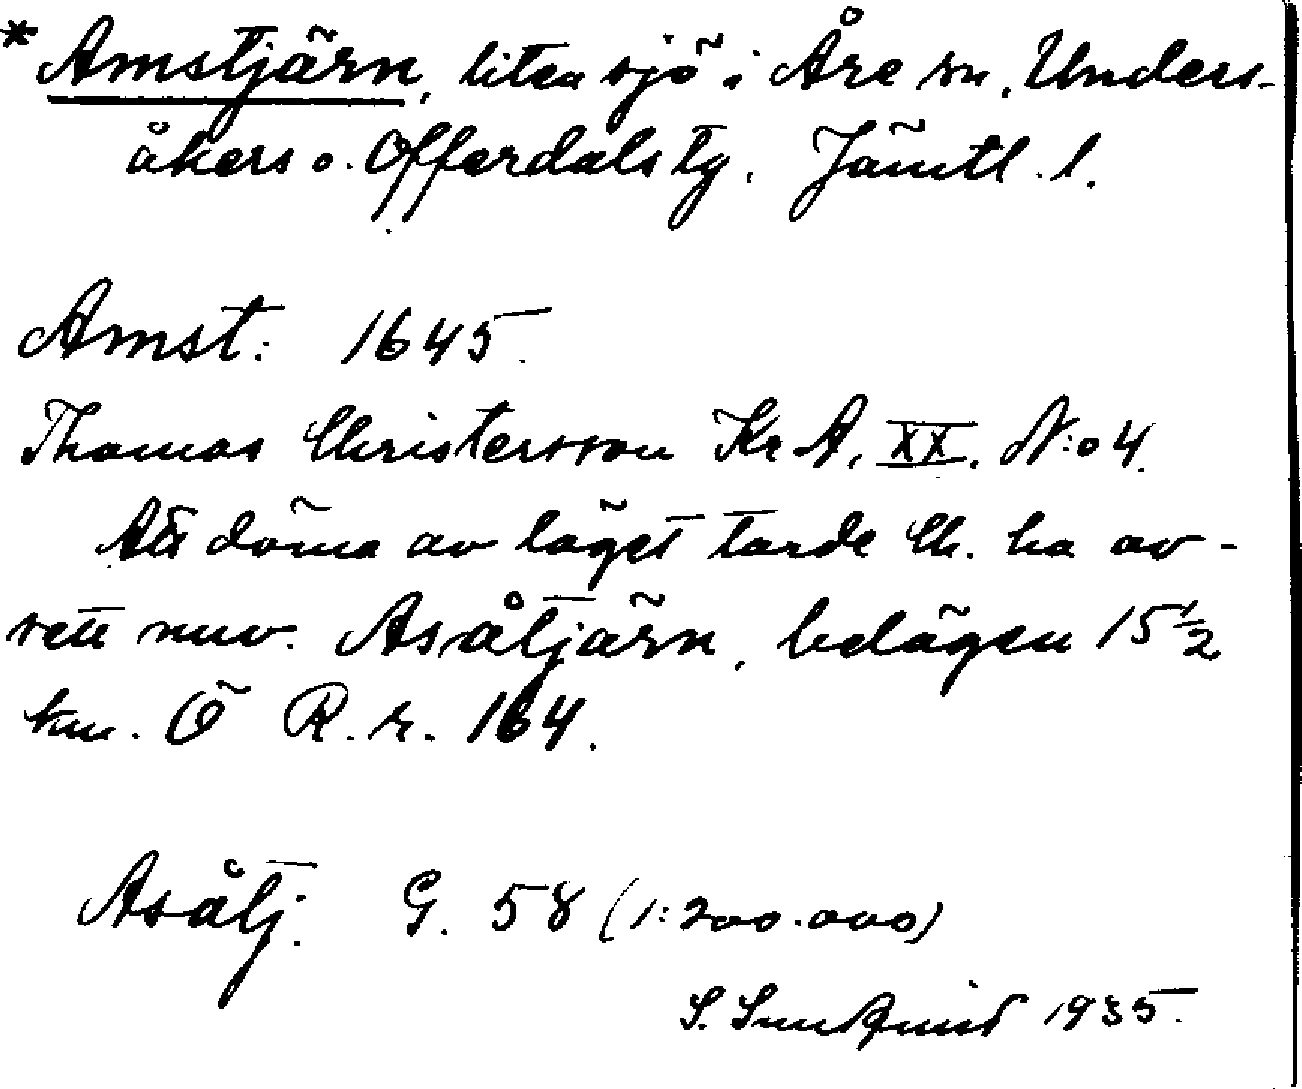 * Amstjärn, liten sjö i Åre sn, Unders-
åkers o. Offerdals tg, Jämtl. l.
Amst: 1645.
Thomas Christersson Kr A, XX, N:o 4.
Att döma av läget torde Ch. ha av-
sett nuv. Asåtjärn, belägen 15 1/2
km. Ö R. r. 164.
Asåtj. G. 58 (1:200.000)
S. Sundqvist 1935.